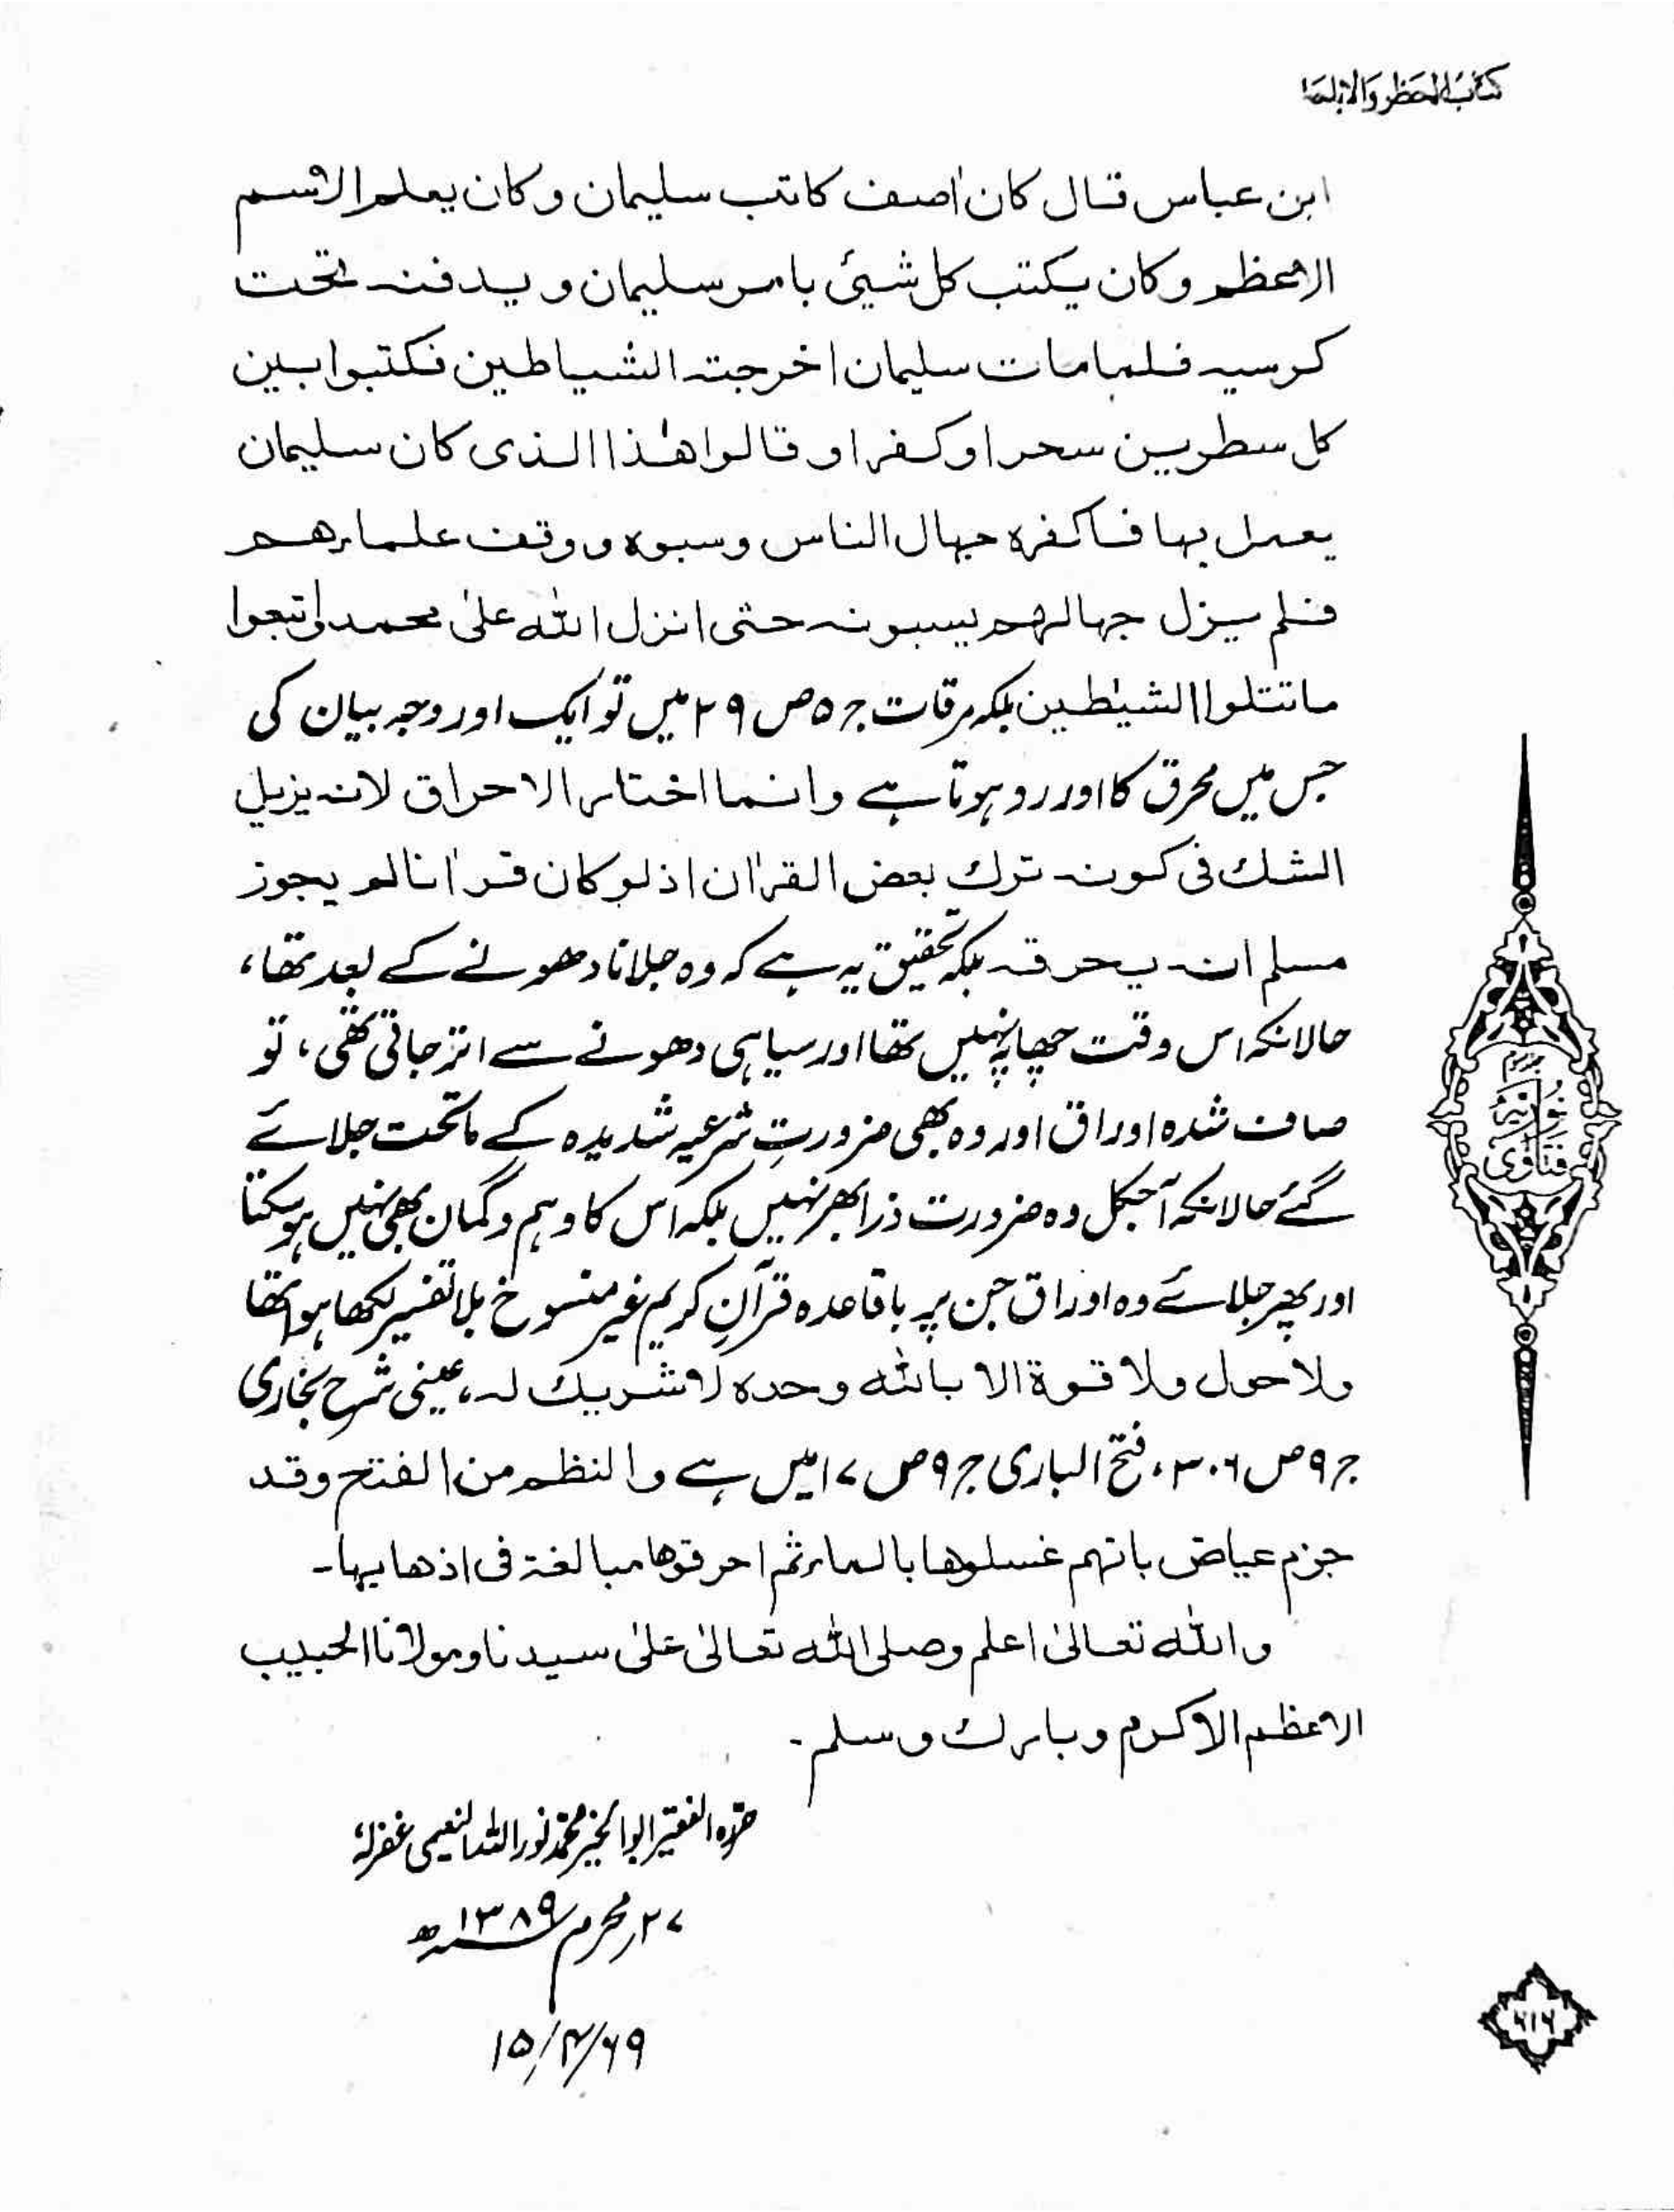 كتاب الحظر والاباحة
ابن عباس قال كان اٰصف كاتب سليمان وكان يعلم الاسم
الاعظم وكان يكتب كل شيئ بامر سليمان و يدفنه تحت
كرسيه فلما مات سليمان اخرجته الشياطين فكتبوا بين
كل سطرين سحرا و كفرا و قالوا هٰذا الذى كان سليمان
يعمل بها فاكفره جهال الناس وسبوه و وقف علماءهم
فلم يزل جهالهم يسبونه حتى انزل الله علىٰ محمد واتبعوا
ما تتلوا الشيٰطين بلکہ مرقات ج ۵ ص ۲۹ میں تو ایک اور وجہ بیان کی
جس میں محرق کا اور رد ہوتا ہے وانما اختار الاحراق لانه يزيل
الشك فى كونه ترك بعض القراٰن اذ لو كان قراٰنا لم يجوز
مسلم انه يحرقه بلکہ تحقیق یہ ہے کہ وہ جلانا دھونے کے بعد تھا،
حالانکہ اس وقت چھاپہ نہیں تھا اور سیاہی دھونے سے اتر جاتی تھی، تو
صاف شدہ اوراق اور وہ بھی ضرورتِ شرعیہ شدیدہ کے ماتحت جلائے
گئے حالانکہ آجکل وہ ضرورت ذرا بھر نہیں بلکہ اس کا وہم و گمان بھی نہیں ہو سکتا
اور پھر جلائے وہ اوراق جن پر باقاعدہ قرآنِ کریم غیر منسوخ بلا تفسیر لکھا ہوا تھا
ولا حول ولا قوة الا بالله وحده لا شريك له، عینی شرح بخاری
ج ۹ ص ۳۰۶، فتح الباری ج ۹ ص ۱۷ میں ہے والنظم من الفتح وقد
جزم عياض بانهم غسلوها بالماء ثم احرقوها مبالغة فى اذهابها۔
والله تعالىٰ اعلم وصلى الله تعالىٰ علىٰ سيدنا ومولانا الحبيب
الاعظم الاكرم وبارك وسلم۔
حررہ الفقیر ابو الخیر محمد نور اللہ النعیمی غفرلہٗ
۲۷ر محرم ۱۳۸۹ھ
۱۵/۴/۶۹
نوریہ
فتاویٰ
۶۱۶